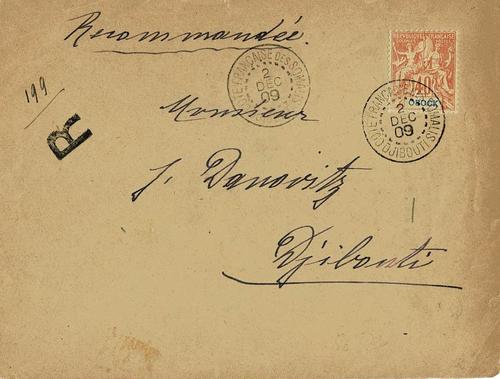 Recommandée
RÉPUBLIQUE FRANÇAISE
40
OBOCK
CÔTE FRANÇAISE DES SOMALIS
2
DEC
09
CÔTE FRANÇAISE DES SOMALIS
2
DEC
09
DJIBOUTI
199
R
Monsieur
J. Danovitz
Djibouti